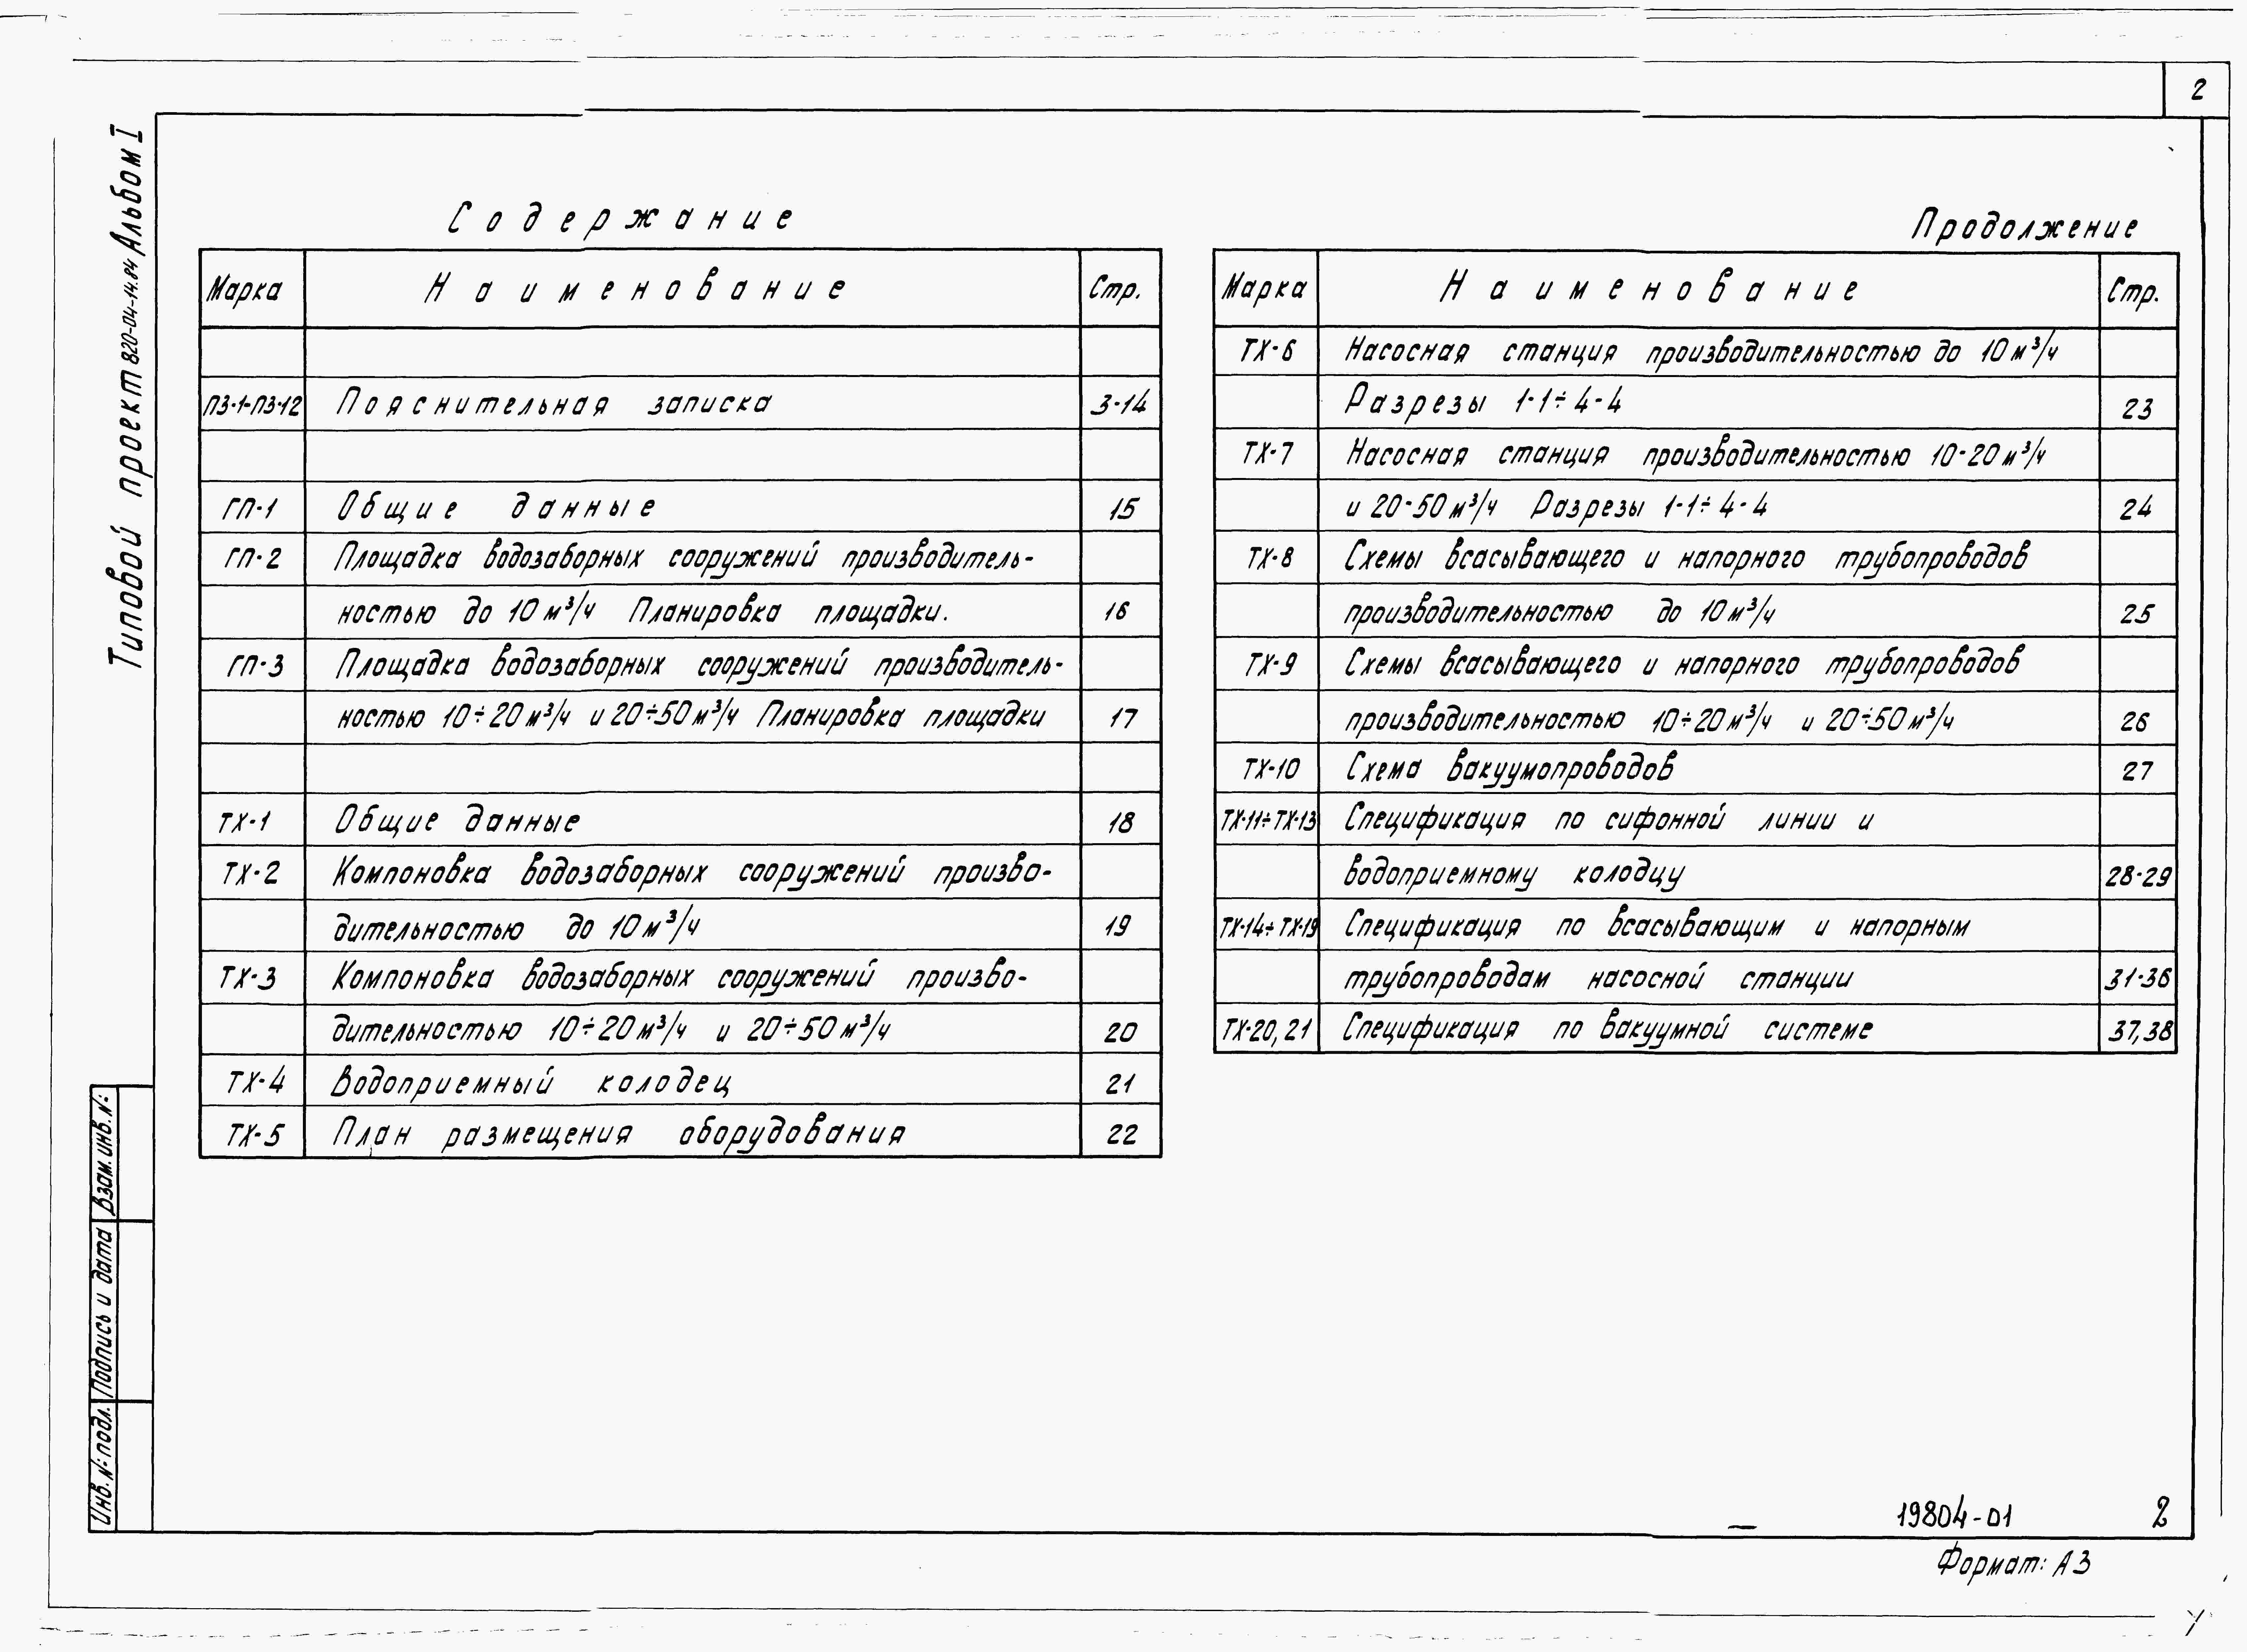 2
Типовой проект 820-04-14.84 Альбом I
Содержание
Марка Наименование Стр.
ПЗ-1-ПЗ-12 Пояснительная записка 3-14
ГП-1 Общие данные 15
ГП-2 Площадка водозаборных сооружений производитель-
ностью до 10 м³/ч Планировка площадки. 16
ГП-3 Площадка водозаборных сооружений производитель-
ностью 10÷20 м³/ч и 20÷50 м³/ч Планировка площадки 17
ТХ-1 Общие данные 18
ТХ-2 Компоновка водозаборных сооружений произво-
дительностью до 10 м³/ч 19
ТХ-3 Компоновка водозаборных сооружений произво-
дительностью 10÷20 м³/ч и 20÷50 м³/ч 20
ТХ-4 Водоприемный колодец 21
ТХ-5 План размещения оборудования 22
Продолжение
Марка Наименование Стр.
ТХ-6 Насосная станция производительностью до 10 м³/ч
Разрезы 1-1÷4-4 23
ТХ-7 Насосная станция производительностью 10-20 м³/ч
и 20-50 м³/ч Разрезы 1-1÷4-4 24
ТХ-8 Схемы всасывающего и напорного трубопроводов
производительностью до 10 м³/ч 25
ТХ-9 Схемы всасывающего и напорного трубопроводов
производительностью 10÷20 м³/ч и 20÷50 м³/ч 26
ТХ-10 Схема вакуумопроводов 27
ТХ-11÷ТХ-13 Спецификация по сифонной линии и
водоприемному колодцу 28-29
ТХ-14÷ТХ-19 Спецификация по всасывающим и напорным
трубопроводам насосной станции 31-36
ТХ-20, 21 Спецификация по вакуумной системе 37, 38
Взам. инв. №:
Подпись и дата
Инв. №: подл.
19804-01 2
Формат: А3